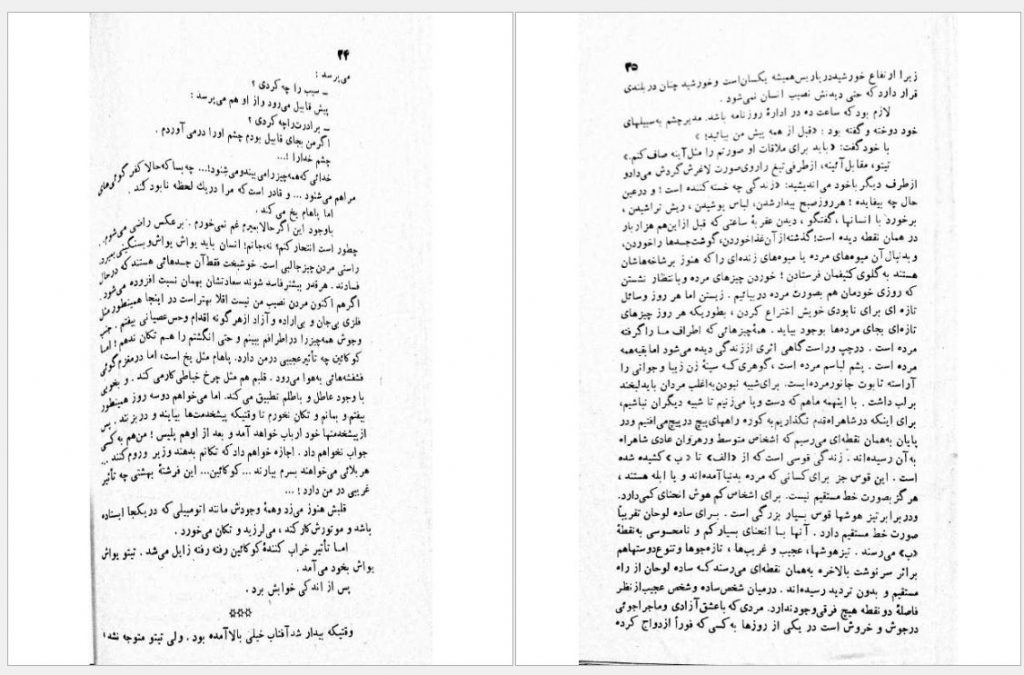 ۳۴
می‌پرسد :
ـ سیب را چه کردی ؟
پیش قابیل می‌رود و از او هم می‌پرسد :
ـ برادرت را چه کردی ؟
اگر من بجای قابیل بودم چشم اورا درمی‌آوردم .
چشم خدارا !...
خدائی که همه چیز را می‌بیند و می‌شنود !... چه بسا که حالا کفر گوئی‌های
مراهم می‌شنود ... و قادر است که مرا دریك لحظه نابود کند .
اما پاهام یخ می‌کند .
باوجود این اگر حالا بمیرم غم نمی‌خورم . برعکس راضی می‌شوم .
چطور است انتحار کنم؟ نه،جانم! انسان باید یواش یواش و بسنگینی بمیرد.
راستی مردن چیز جالبی است. خوشبخت فقط آن جسدهائی هستند که درحال
فسادند . هرقدر بیشتر فاسد شوند سعادتشان بهمان نسبت افزوده می‌شود .
اگر هم اکنون مردن نصیب من نیست اقلا بهتر است در اینجا همینطور مثل
فلزی بی‌جان و بی‌اراده و آزاد از هرگونه اقدام وحس عصیانی بیفتم .
وجوش همه‌چیز را در اطرافم ببینم و حتی انگشتم را هم تکان ندهم ! اما
کوکائین چه تأثیر عجیبی درمن دارد. پاهام مثل یخ است، اما درمغزم گوئی
فشفشه‌هائی به‌هوا می‌رود . قلبم هم مثل چرخ خیاطی کار می‌کند . و بخوبی
با وجود عاطل و باطلم تطبیق می‌کند. اما می‌خواهم دوسه روز همینطور
بیفتم و بمانم و تکان نخورم تا وقتیکه پیشخدمت‌ها بیایند و در بزنند . پس
از پیشخدمتها خود ارباب خواهد آمد و بعد از اوهم پلیس ! من‌هم به کسی
جواب نخواهم داد . اجازه خواهم داد که تکانم بدهند وزیر وروم کنند ...
هر بلائی می‌خواهند بسرم بیارند ... کوکائین... این فرشتهٔ بهشتی چه تأثیر
غریبی در من دارد ! ...
قلبش هنوز می‌زد و همهٔ وجودش مانند اتومبیلی که در یکجا ایستاده
باشد و موتورش کار کند ، می‌لرزید و تکان می‌خورد .
اما تأثیر خراب کنندهٔ کوکائین رفته رفته زایل می‌شد . تیتو یواش
یواش بخود می‌آمد .
پس از اندکی خوابش برد .
☼☼☼
وقتیکه بیدار شد آفتاب خیلی بالا آمده بود . ولی تیتو متوجه نشد ؛
۳۵
زیرا ارتفاع خورشید در پاریس همیشه یکسان است و خورشید چنان در بلندی
قرار دارد که حتی دیدنش نصیب انسان نمی‌شود .
لازم بود که ساعت ده در ادارهٔ روزنامه باشد. مدیر چشم به سبیلهای
خود دوخته و گفته بود : «قبل از همه پیش من بیائید! »
با خود گفت: «باید برای ملاقات او صورتم را مثل آینه صاف کنم.»
تیتو، مقابل آئینه، ازطرفی تیغ را روی صورت لاغرش گردش می‌داد و
ازطرف دیگر باخود می‌اندیشید: «زندگی چه خسته کننده است ! و درعین
حال چه بیفایده ! هر روز صبح بیدارشدن، لباس پوشیدن ، ریش تراشیدن ،
برخورد با انسانها ، گفتگو ، دیدن عقربهٔ ساعتی که قبل از این هم هزار بار
در همان نقطه دیده است؛ گذشته از آن غذا خوردن، گوشت جسدها را خوردن،
و بدنبال آن میوه‌های مرده یا میوه‌های زنده‌ای را که هنوز بر شاخه‌هاشان
هستند به گلوی کثیفمان فرستادن ! خوردن چیزهای مرده و با انتظار نشستن
که روزی خودمان هم بصورت مرده در بیائیم . زیستن اما هر روز وسائل
تازه ای برای نابودی خویش اختراع کردن ، بطوریکه هر روز چیزهای
تازه‌ای بجای مرده‌ها بوجود بیاید . همهٔ چیزهائی که اطراف ما را گرفته
مرده است . درچپ وراست گاهی اثری اززندگی دیده می‌شود اما بقیه همه
مرده است . پشم لباسم مرده است، گوهری که سینهٔ زن زیبا و جوانی را
آراسته تابوت جانور مرده‌ایست. برای شبیه نبودن به اغلب مردان باید لبخند
برلب داشت . با اینهمه ماهم که دست و پا می‌زنیم تا شبیه دیگران نباشیم،
برای اینکه درشاهراه قدم نگذاریم به کوره راههای پیچ درپیچ می‌افتیم ودر
پایان به همان نقطه‌ای می‌رسیم که اشخاص متوسط و رهروان عادی شاهراه
به آن رسیده‌اند . زندگی قوسی است که از «الف» تا «ب» کشیده شده
است . این قوس جز برای کسانی که مرده بدنیا آمده‌اند و یا ابله هستند ،
هرگز بصورت خط مستقیم نیست. برای اشخاص کم هوش انحنای کمی دارد.
ودر برابر تیز هوشها قوس بسیار بزرگی است . برای ساده لوحان تقریباً
صورت خط مستقیم دارد . آنها با انحنای بسیار کم و نامحسوسی به نقطهٔ
«ب» می‌رسند . تیزهوشها، عجیب و غریب‌ها ، تازه‌جوها و تنوع دوستها هم
براثر سرنوشت بالاخره به‌همان نقطه‌ای می‌رسند که ساده لوحان از راه
مستقیم و بدون تردید رسیده‌اند . درمیان شخص ساده و شخص عجیب از نظر
فاصلهٔ دو نقطه هیچ فرقی وجود ندارد. مردی که با عشق آزادی و ماجراجوئی
درجوش و خروش است در یکی از روزها به کسی که فوراً ازدواج کرده